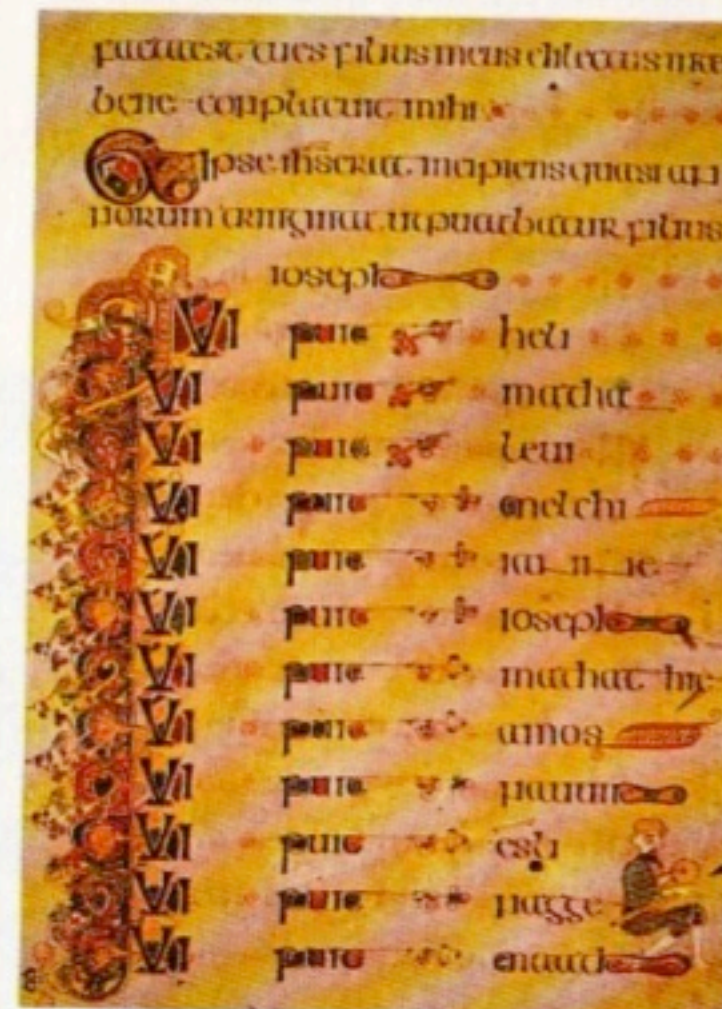 facta est tu es filius meus dilectus in te
bene conplacuit mihi
Et ipse ihs erat incipiens quasi an
norum triginta ut putabatur filius
ioseph
QVI fuit heli
QVI fuit mathat
QVI fuit levi
QVI fuit melchi
QVI fuit iannae
QVI fuit ioseph
QVI fuit mathathie
QVI fuit amos
QVI fuit nauum
QVI fuit esli
QVI fuit nagge
QVI fuit
8